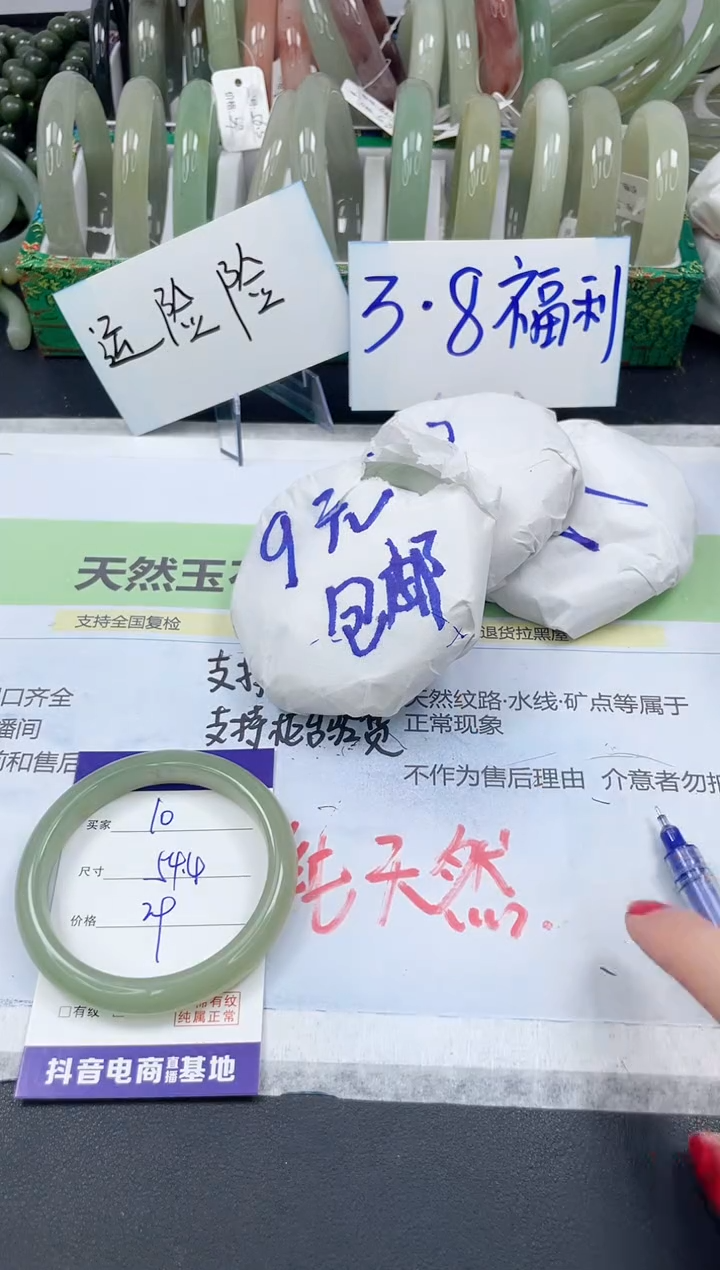 运险险
3.8福利
9元
包邮
天然玉石
支持全国复检
退货拉黑屋
支持
口齐全
天然纹路·水线·矿点等属于
支持柜台验货
播间
正常现象
前和售后
不作为售后理由 介意者勿拍
买家 10
尺寸 54.4
价格 29
纯天然.
□有纹
稀有纹
纯属正常
抖音电商直播基地